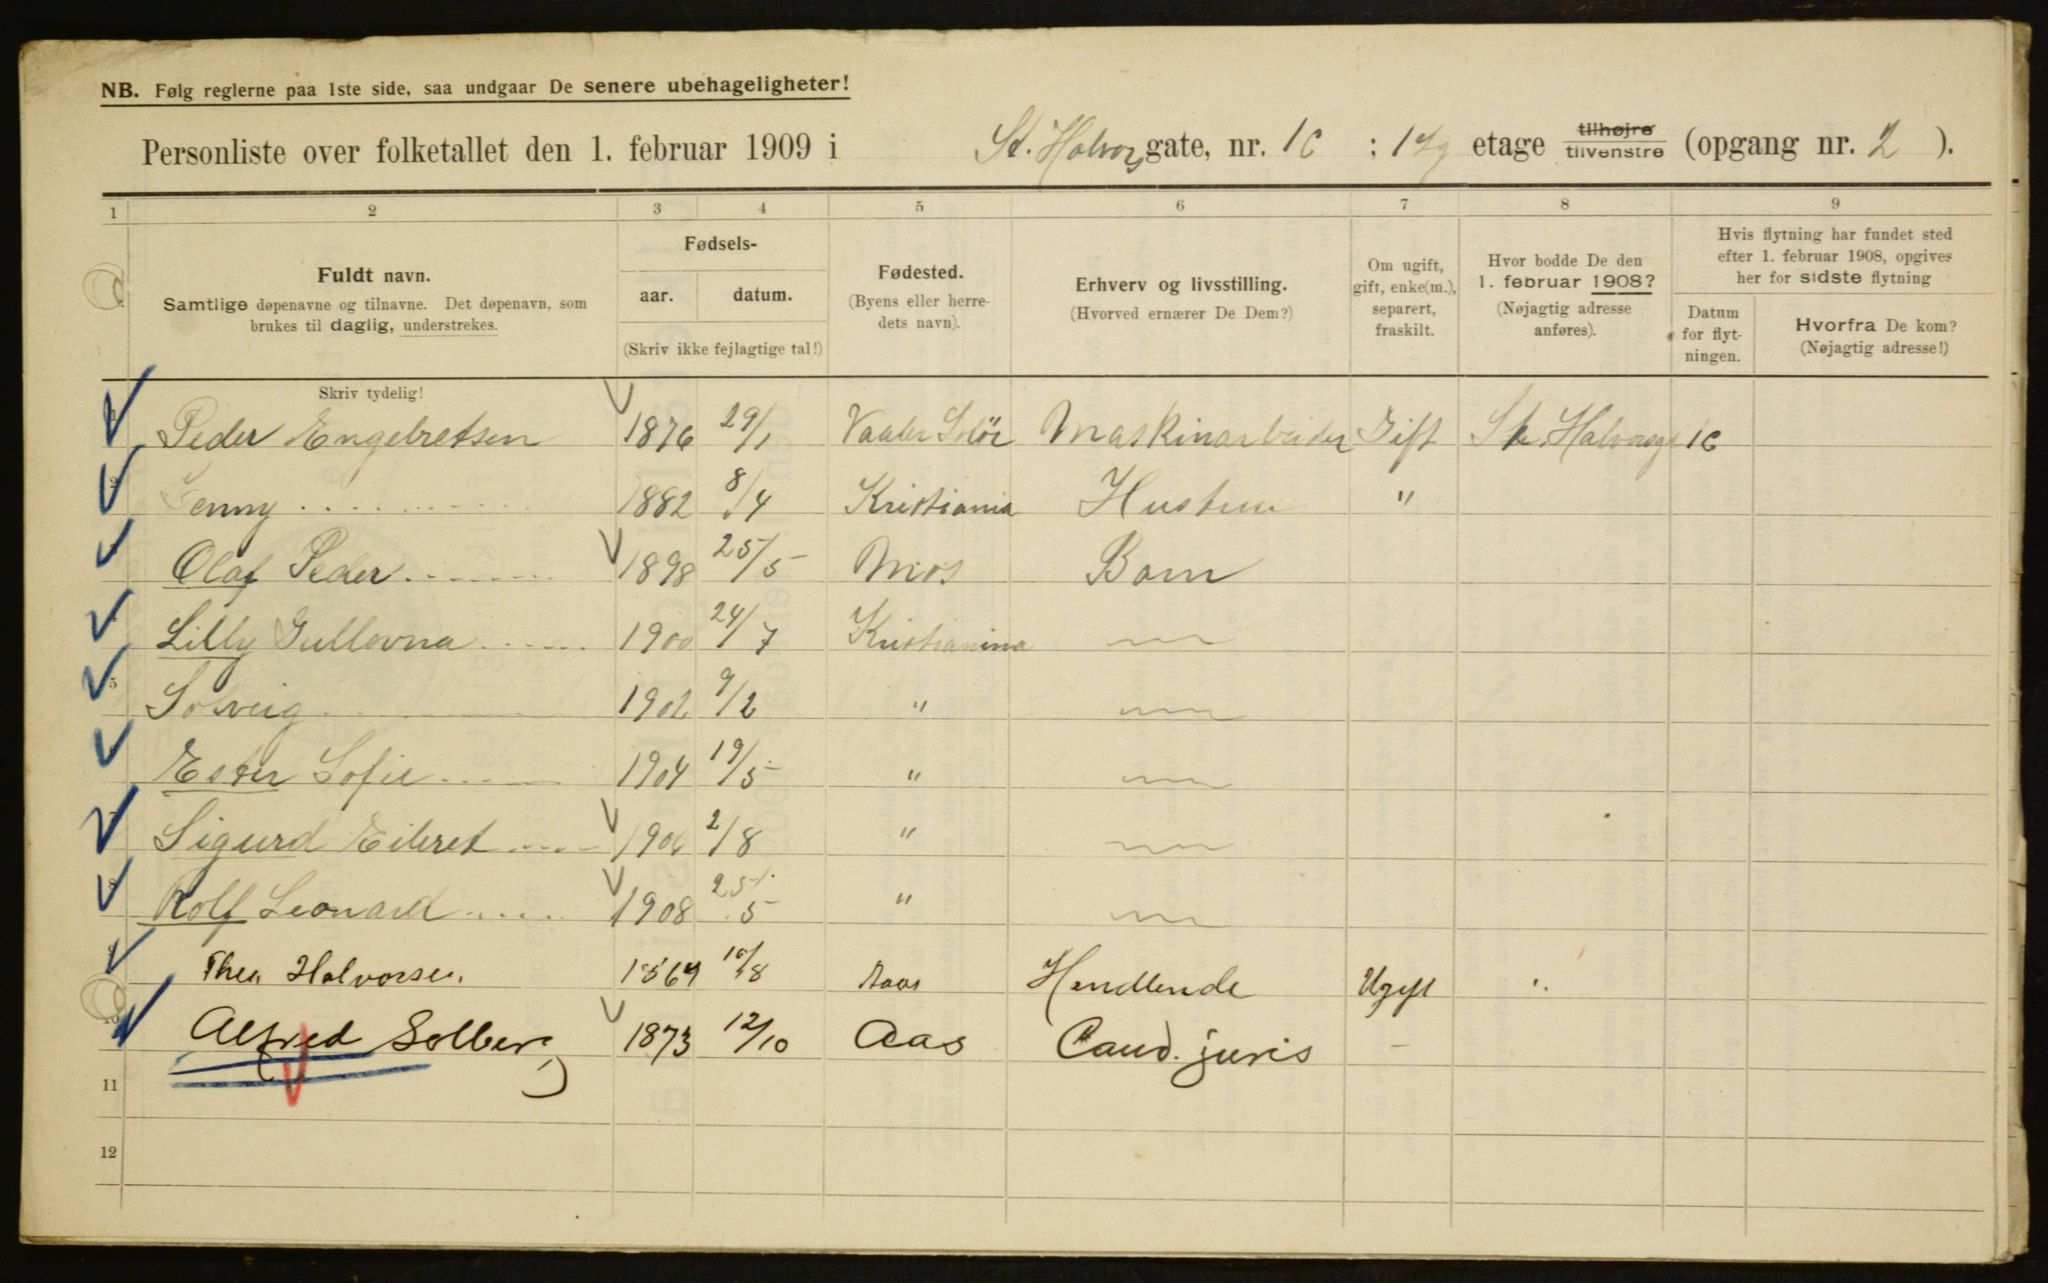 NB. Følg reglerne paa 1ste side, saa undgaar De senere ubehageligheter!
Personliste over folketallet den 1. februar 1909 i St. Halvors gate, nr. 1C ; 1 etg etage tilhøjre tilvenstre (opgang nr. 2 ).
1 2 3 4 5 6 7 8 9
Fuldt navn.
Samtlige døpenavne og tilnavne. Det døpenavn, som
brukes til daglig, understrekes.
Fødsels-
aar. datum.
(Skriv ikke fejlagtige tal!)
Fødested.
(Byens eller herre-
dets navn).
Erhverv og livsstilling.
(Hvorved ernærer De Dem?)
Om ugift,
gift, enke(m.),
separert,
fraskilt.
Hvor bodde De den
1. februar 1908?
(Nøjagtig adresse
anføres).
Hvis flytning har fundet sted
efter 1. februar 1908, opgives
her for sidste flytning
Datum
for flyt-
ningen.
Hvorfra De kom?
(Nøjagtig adresse!)
Skriv tydelig!
1 Peder Engebretsen 1876 29/1 Vaaler Solör Maskinarbeider Gift St Halvorsg 1C
2 Jenny 1882 8/4 Kristiania Hustru "
Olaf Peder 1898 25/5 Mos Barn
Lilly Gullovna 1900 24/7 Kristianina
5 Solveig 1902 9/2 "
Ester Sofie 1904 19/5 "
Sigurd Eileret 1906 2/8 "
8 Rolf Leonard 1908 25/5 "
9 Thea Halvorsen 1864 10/8 Aas Handlende Ugift "
10 Alfred Solberg 1873 12/10 Aas Cand. juris -
11
12